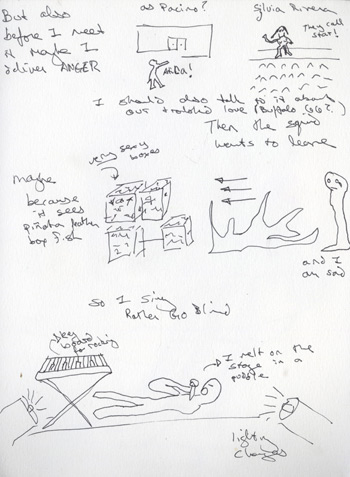 But also
before I meet
it maybe I
deliver ANGER
as Pacino?
Attica!
Sylvia Rivera
They call
I should also talk to it about
our troubled love (Buffalo 66?)
Then the squid
wants to leave
very sexy
boxes
maybe
because
it sees
piñata feather
box fish
and I
am sad
So I sing
Rather Go Blind
key
board
for rocking
I melt on the
stage in a
puddle
lighting
changes